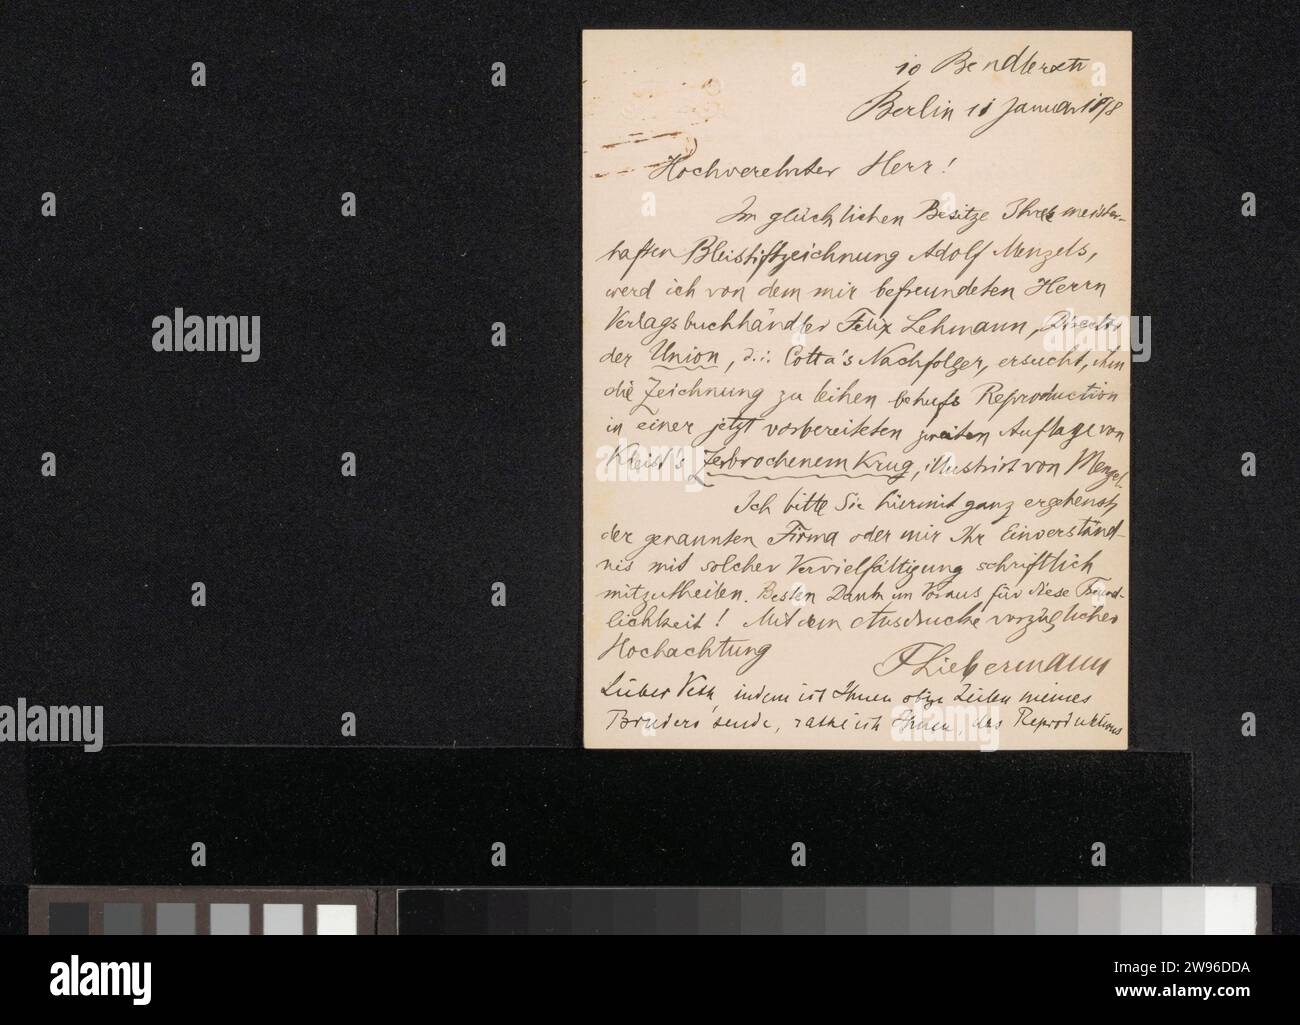 10 Bendlerstr
Berlin 11 Januar 1898
Hochverehrter Herr!
Im glücklichen Besitze Ihrer meister-
haften Bleistiftzeichnung Adolf Menzels,
werd ich von dem mir befreundeten Herrn
Verlagsbuchhändler Felix Lehmann, Director
der Union, d.i: Cotta's Nachfolger, ersucht, ihm
die Zeichnung zu leihen behufs Reproduction
in einer jetzt vorbereiteten zweiten Auflage von
Kleist's Zerbrochenem Krug, illustrirt von Menzel.
Ich bitte Sie hiermit ganz ergebenst,
der genannten Firma oder mir Ihr Einverständ-
nis mit solcher Vervielfältigung schriftlich
mitzutheilen. Besten Dank im Voraus für diese Freund-
lichkeit! Mit dem Ausdrucke vorzüglicher
Hochachtung
F Liebermann
Lieber Veth, indem ich Ihnen obige Zeilen meines
Bruders sende, rathe ich Ihnen, das Reproduktions
alamy
alamy
alamy
alamy
alamy
alamy
Image ID: 2W96DDA
www.alamy.com